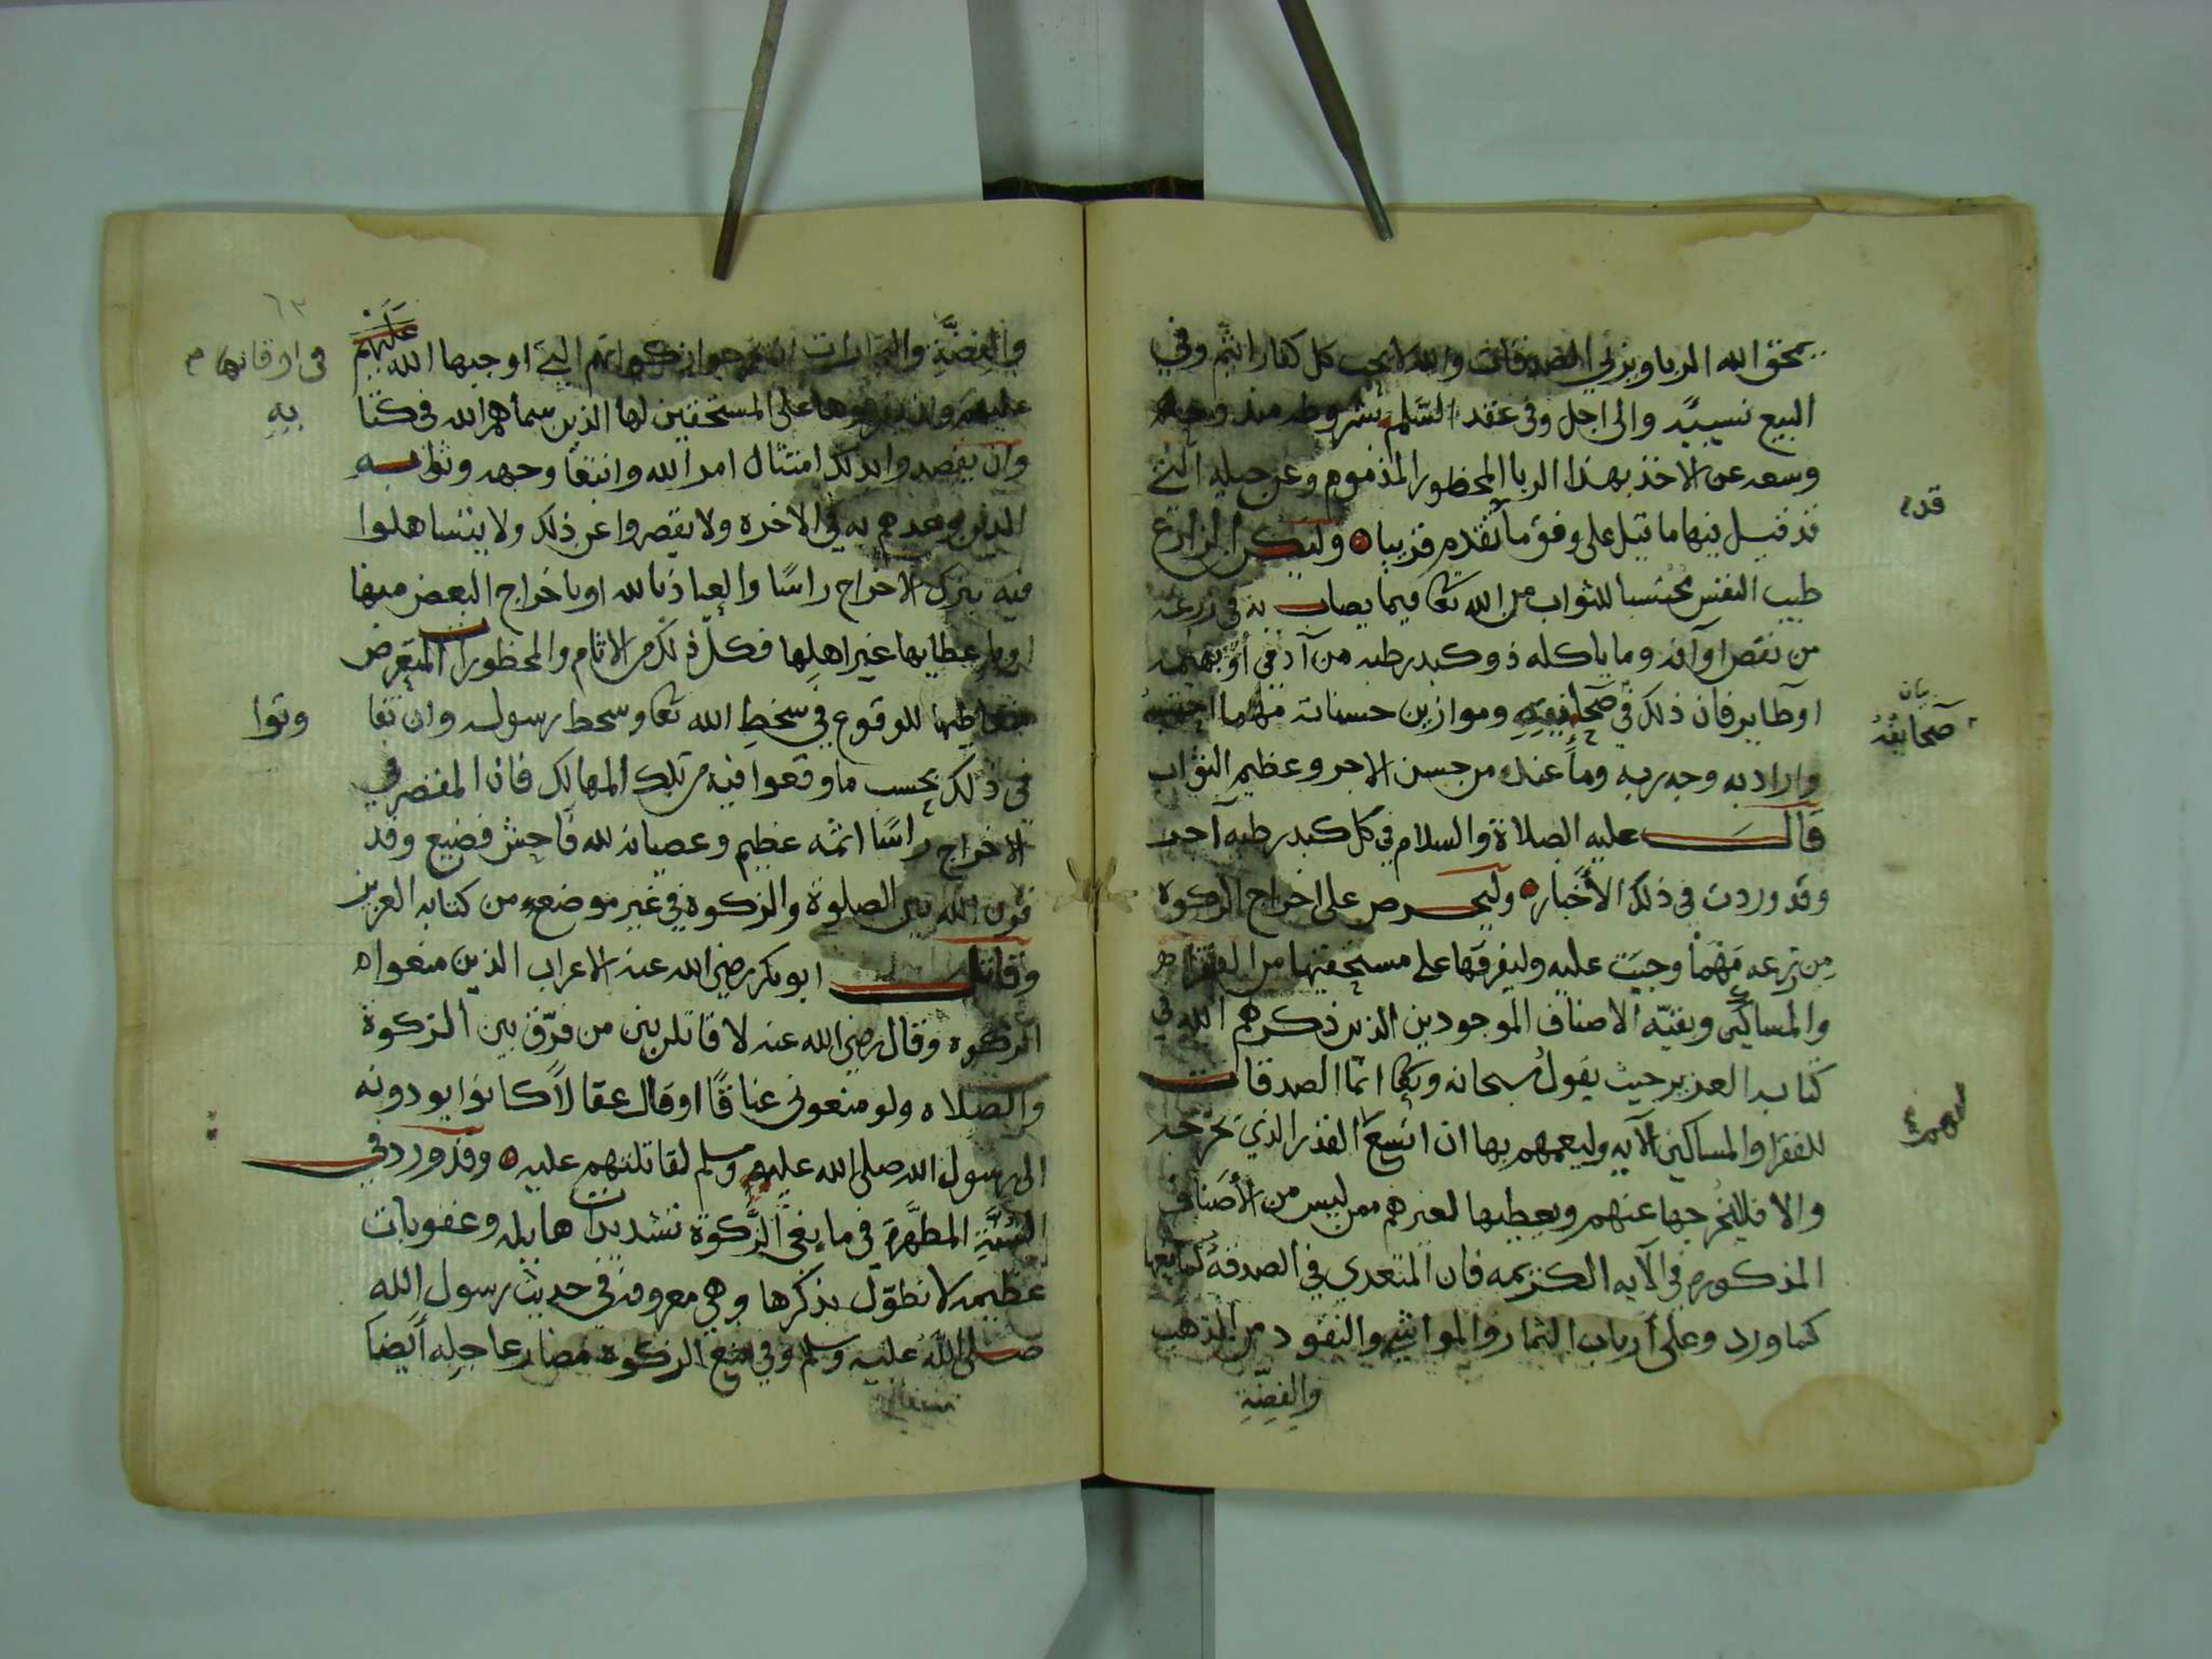 يمحق الله الربا ويربي الصدقات والله لا يحب كل كفار اثيم وفي
البيع نسيية والى اجل وفى عقد السلم بشروطه مندوحة
وسعه عن الاخذ بهذا الربا المحظور المذموم وعن حيله التي
قد قيل فيها ما قيل على وفق ما تقدم قريبا ه وليكن الزارع
طيب النفس محتسبا للثواب من الله تعا فيما يصاب به في زرعه
من نقص او آفه وما ياكله ذو كبد رطبه من آدمي أو بهيمه
او طاير فان ذلك في صحايفه وموازين حسناته مهما احتسبه
واراد به وجه ربه وما عنده من حسن الاجر وعظيم الثواب
قال عليه الصلاة والسلام في كل كبد رطبه آجر
وقد وردت في ذلك الأخبار ه وليحرص على اخراج الزكوة
من زرعه مهما وجبت عليه وليفرقها على مستحقيها من الفقراء
والمساكين وبقيّه الاصناف الموجودين الذين ذكرهم الله في
كتابه العزيز حيث يقول سبحانه وتعا انما الصدقات
للفقرا والمساكين الآيه وليعمهم بها ان اتسع القدر الذي يخرجه
والا فلا يخرجها عنهم ويعطيها لغيرهم ممن ليس من الأصناف
المذكوره في الآيه الكريمه فان المتعدي في الصدقة كمانعها
كما ورد وعلى أرباب الثمار والمواشي والنقود من الذهب
والفضّةِ
قدم
بيان
صحايفه
والفضّةِ والتجارات ان يخرجوا زكواتهم التي اوجبها الله عليهم
عليهم وان يفرقوها على المستحقين لها الذين سماهم الله في كتا
وان يقصدوا بذلك امتثال امر الله وابتغا وجهه وثوابه
الذي وعدهم به في الآخره ولا يقصروا عن ذلك ولا يتساهلوا
فيه بترك الاخراج راسًا والعياذ بالله او باخراج البعض منها
او باعطايها غير اهلها فكل ذلك من الاثام والمحظورات المتعرض
متعاطيها للوقوع في سخط الله تعا وسخط رسوله وان تفا
في ذلك بحسب ما وقعوا فيه من تلك المهالك فان المقصر في
الاخراج راسًا اثمه عظيم وعصيانه لله فاحش فضيع وقد
قرن الله بين الصلوة والزكوة في غير موضع من كتابه العزيز
وقاتل ابو بكر رضي الله عنه الاعراب الذين منعوا
الزكوه وقال رضي الله عنه لاقاتلن من فرّق بين الزكوة
والصلاه ولو منعوني عناقًا او قال عقالاً كانوا يودونه
الى رسول الله صلى الله عليه وسلم لقاتلتهم عليه ه وقد ورد في
السُنّةِ المطهّرة في مانعي الزّكوة تشديدات هايله وعقوبات
عظيمه لا نطوّل بذكرها وهي معروفه في حديث رسول الله
صلى الله عليه وسلم وفي منع الزكوة مضار عاجله أيضا
٦٣
في اوقاتها
به
وتوا